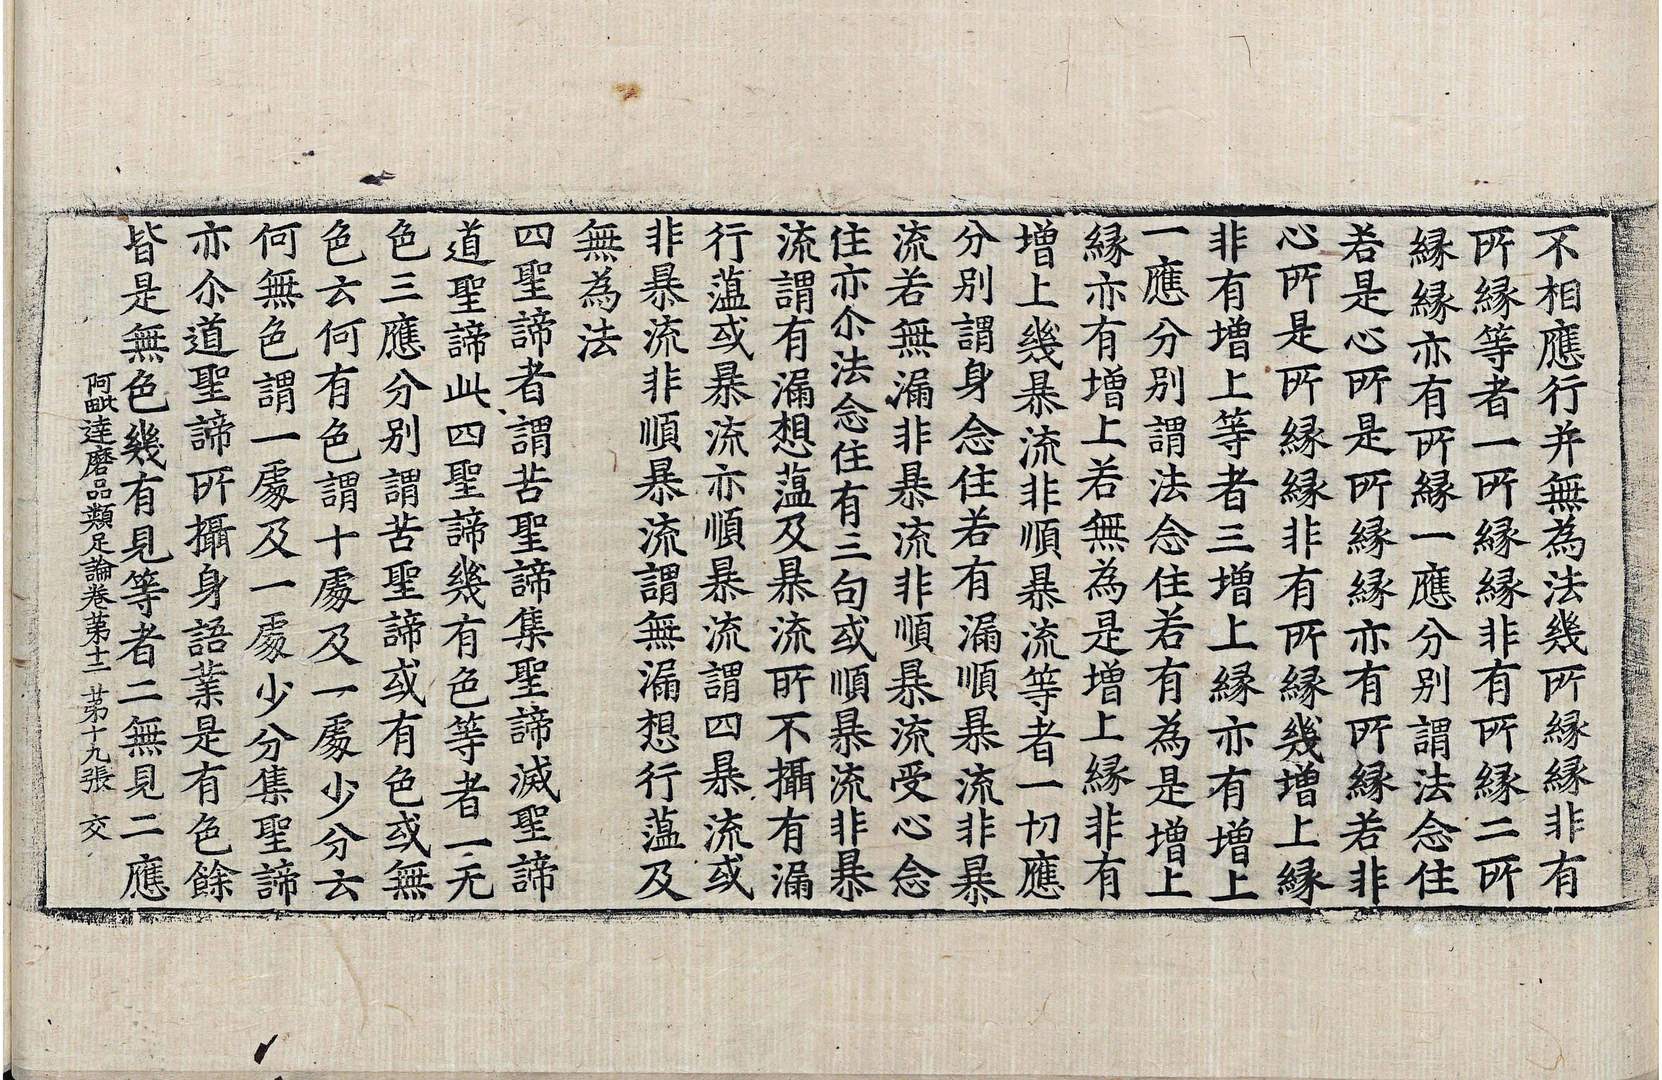 不相應行并無為法幾所縁縁非有
所縁等者一所縁縁非有所縁二所
縁縁亦有所縁一應分別謂法念住
若是心所是所縁縁亦有所縁若非
心所是所縁縁非有所縁幾增上縁
非有增上等者三增上縁亦有增上
一應分別謂法念住若有為是增上
縁亦有增上若無為是增上縁非有
增上幾暴流非順暴流等者一切應
分別謂身念住若有漏順暴流非暴
流若無漏非暴流非順暴流受心念
住亦尒法念住有三句或順暴流非暴
流謂有漏想薀及暴流所不攝有漏
行薀或暴流亦順暴流謂四暴流或
非暴流非順暴流謂無漏想行薀及
無為法
四聖諦者謂苦聖諦集聖諦滅聖諦
道聖諦此四聖諦幾有色等者一无
色三應分別謂苦聖諦或有色或無
色云何有色謂十處及一處少分云
何無色謂一處及一處少分集聖諦
亦尒道聖諦所攝身語業是有色餘
皆是無色幾有見等者二無見二應
阿毗達磨品類足論卷苐十二 苐十九張 交